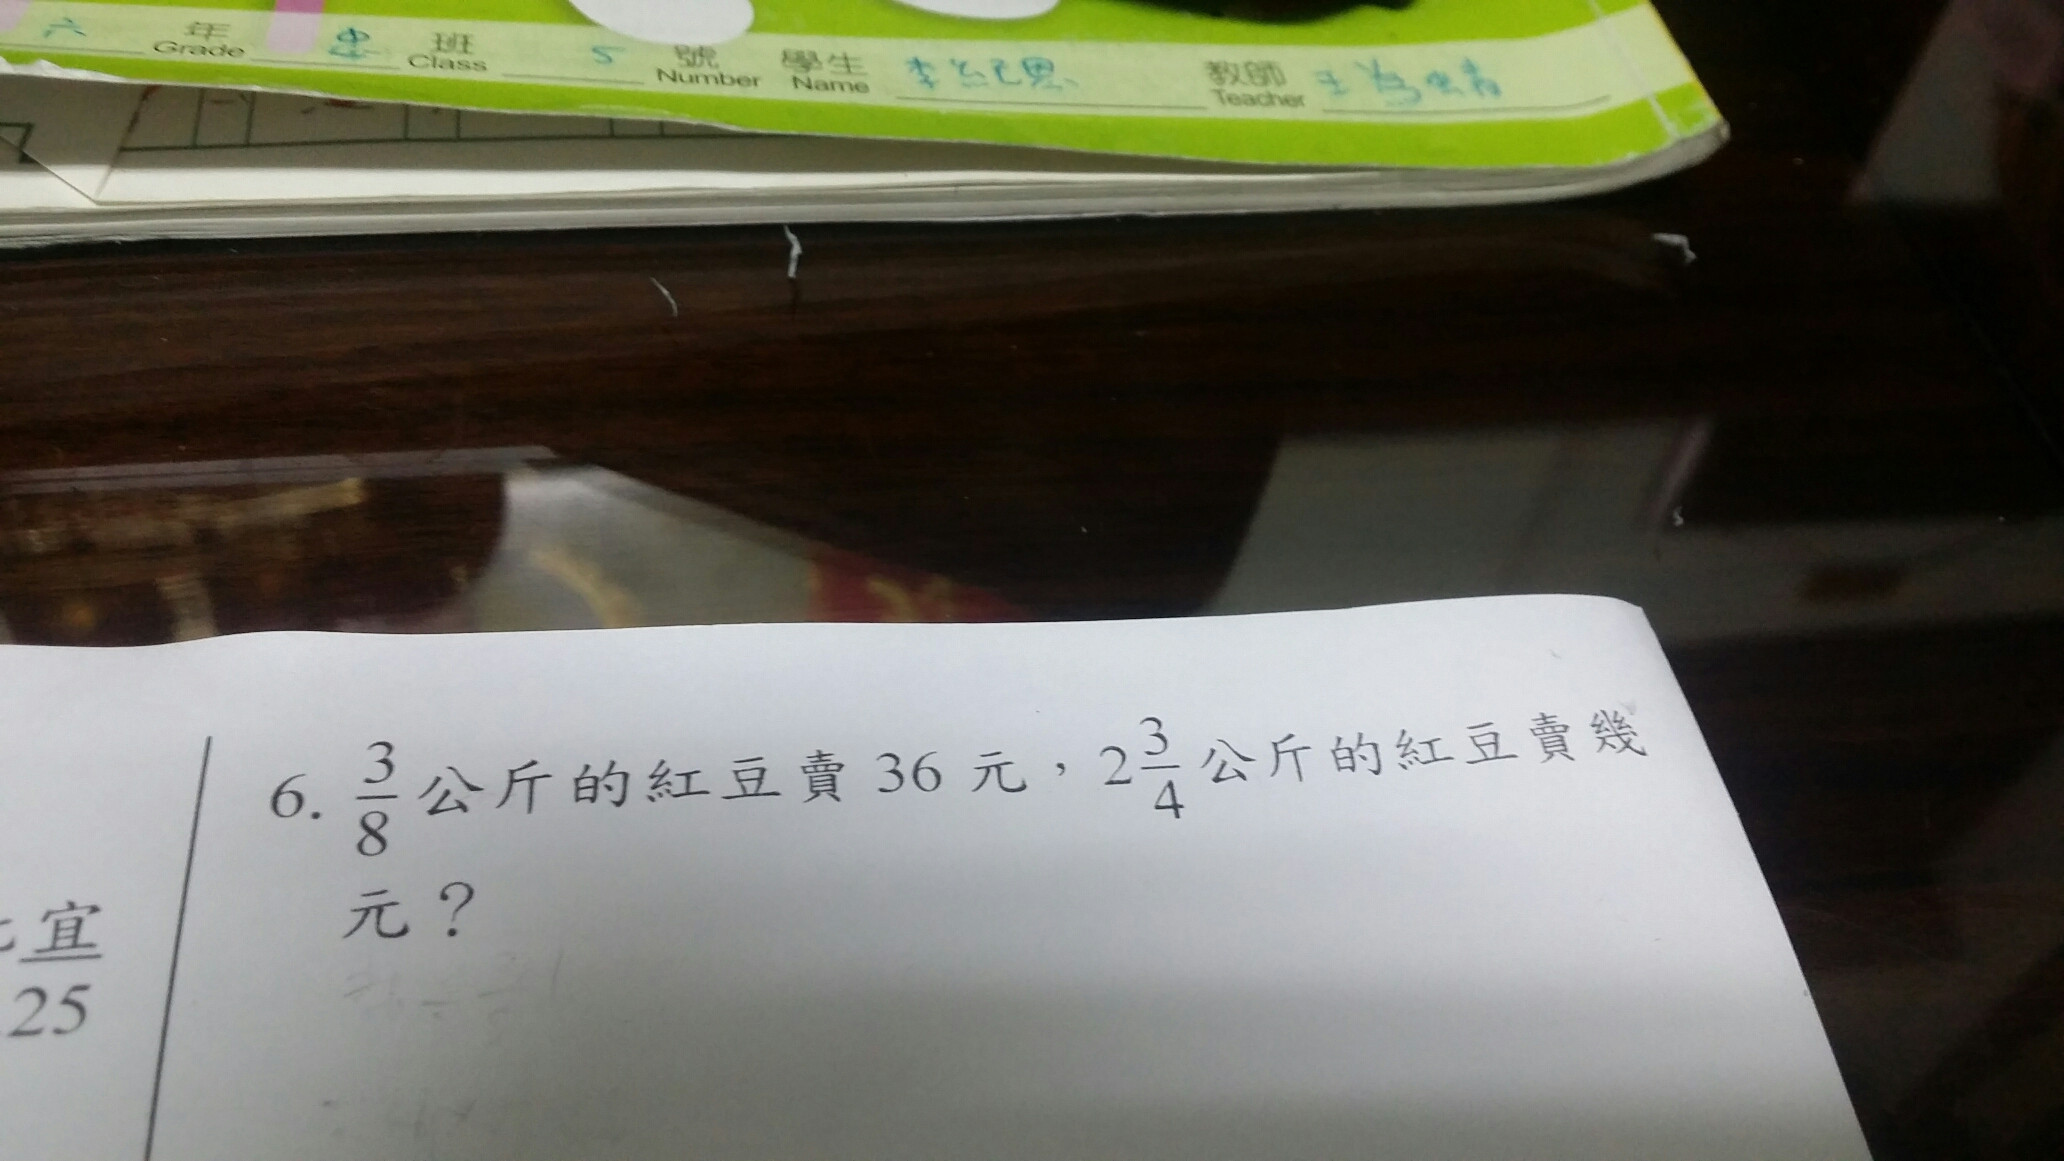 六 年 忠 班 5 號 學生 李紀恩 教師
Grade Class Number Name Teacher
6. 3/8 公斤的紅豆賣 36 元，2 3/4 公斤的紅豆賣幾
元？
宜
25